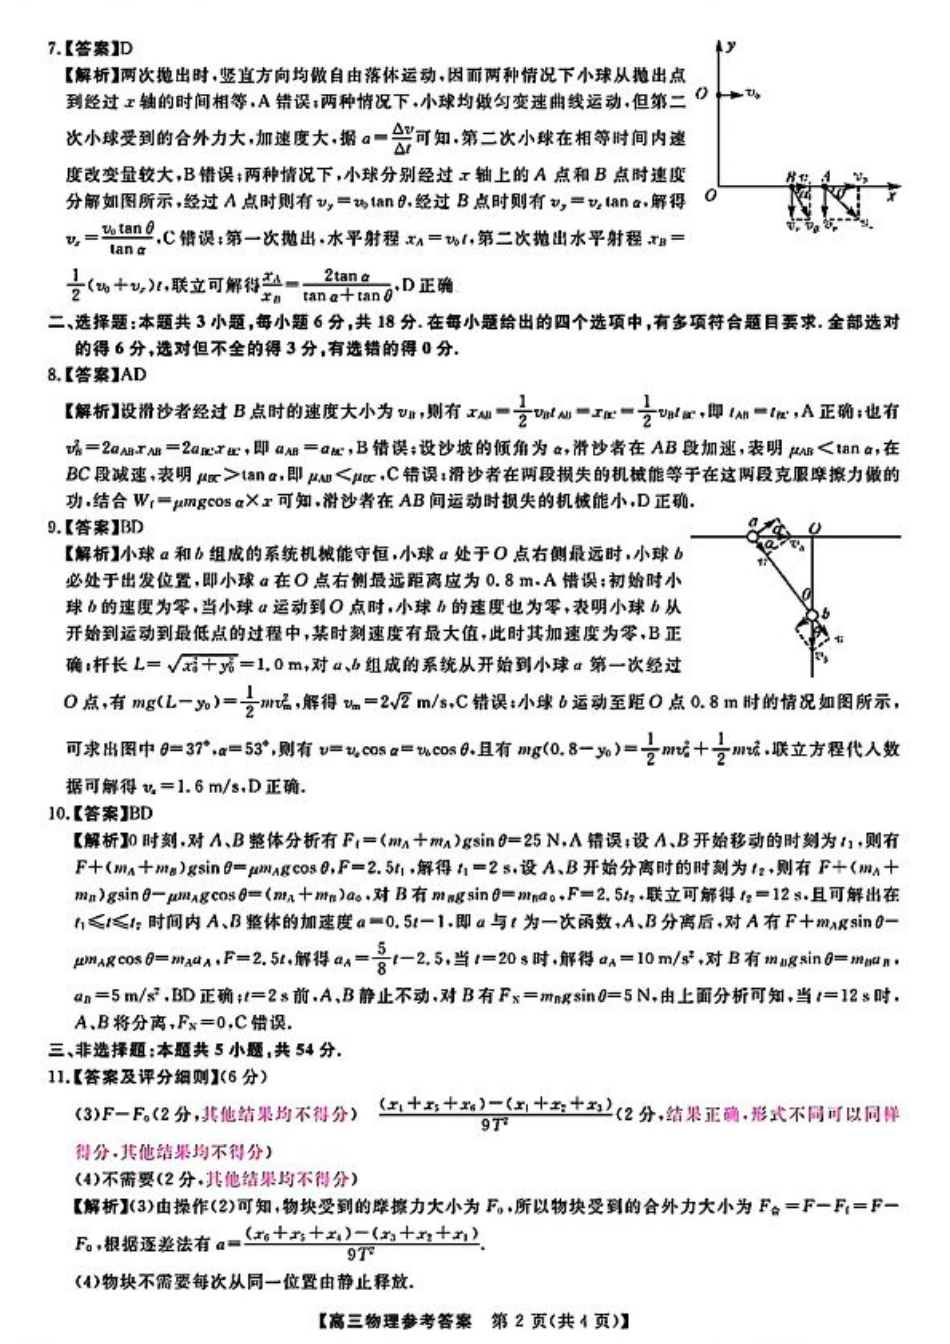 7.【答案】D
【解析】两次抛出时,竖直方向均做自由落体运动,因而两种情况下小球从抛出点
到经过 x 轴的时间相等,A 错误;两种情况下,小球均做匀变速曲线运动,但第二
次小球受到的合外力大,加速度大,据 a=Δv/Δt可知,第二次小球在相等时间内速
度改变量较大,B 错误;两种情况下,小球分别经过 x 轴上的 A 点和 B 点时速度
分解如图所示,经过 A 点时则有 vy=v0tan θ,经过 B 点时则有 vy=vxtan α,解得
vx=v0tan θ/tan α,C 错误;第一次抛出,水平射程 xA=v0t,第二次抛出水平射程 xB=
1/2(v0+vx)t,联立可解得xA/xB=2tan α/(tan α+tan θ),D 正确
y
O
v0
O
B
A
x
二、选择题:本题共 3 小题,每小题 6 分,共 18 分.在每小题给出的四个选项中,有多项符合题目要求.全部选对
的得 6 分,选对但不全的得 3 分,有选错的得 0 分.
8.【答案】AD
【解析】设滑沙者经过 B 点时的速度大小为 vB,则有 xAB=1/2vBtAB=xBC=1/2vBtBC,即 tAB=tBC,A 正确;也有
vB²=2aABxAB=2aBCxBC,即 aAB=aBC,B 错误;设沙坡的倾角为 α,滑沙者在 AB 段加速,表明 μAB<tan α,在
BC 段减速,表明 μBC>tan α,即 μAB<μBC,C 错误;滑沙者在两段损失的机械能等于在这两段克服摩擦力做的
功,结合 Wf=μmgcos α×x 可知,滑沙者在 AB 间运动时损失的机械能小,D 正确.
9.【答案】BD
【解析】小球 a 和 b 组成的系统机械能守恒,小球 a 处于 O 点右侧最远时,小球 b
必处于出发位置,即小球 a 在 O 点右侧最远距离应为 0.8 m,A 错误;初始时小
球 b 的速度为零,当小球 a 运动到 O 点时,小球 b 的速度也为零,表明小球 b 从
开始到运动到最低点的过程中,某时刻速度有最大值,此时其加速度为零,B 正
确;杆长 L=√(x0²+y0²)=1.0 m,对 a、b 组成的系统从开始到小球 a 第一次经过
O 点,有 mg(L-y0)=1/2mvm²,解得 vm=2√2 m/s,C 错误;小球 b 运动至距 O 点 0.8 m 时的情况如图所示,
可求出图中 θ=37°,α=53°,则有 v=vacos α=vbcos θ,且有 mg(0.8-y0)=1/2mva²+1/2mvb²,联立方程代入数
据可解得 va=1.6 m/s,D 正确.
a
O
θ
b
10.【答案】BD
【解析】0 时刻,对 A、B 整体分析有 Ff=(mA+mA)gsin θ=25 N,A 错误;设 A、B 开始移动的时刻为 t1,则有
F+(mA+mB)gsin θ=μmAgcos θ,F=2.5t1,解得 t1=2 s,设 A、B 开始分离时的时刻为 t2,则有 F+(mA+
mB)gsin θ-μmAgcos θ=(mA+mB)a0,对 B 有 mBgsin θ=mBa0,F=2.5t2,联立可解得 t2=12 s,且可解出在
t1≤t≤t2 时间内 A、B 整体的加速度 a=0.5t-1,即 a 与 t 为一次函数,A、B 分离后,对 A 有 F+mAgsin θ-
μmAgcos θ=mAaA,F=2.5t,解得 aA=5/8t-2.5,当 t=20 s 时,解得 aA=10 m/s²,对 B 有 mBgsin θ=mBaB,
aB=5 m/s²,BD 正确;t=2 s 前,A、B 静止不动,对 B 有 FN=mBgsin θ=5 N,由上面分析可知,当 t=12 s 时,
A、B 将分离,FN=0,C 错误.
三、非选择题:本题共 5 小题,共 54 分.
11.【答案及评分细则】(6 分)
(3)F-F0(2 分,其他结果均不得分) (x4+x5+x6)-(x1+x2+x3)/9T²(2 分,结果正确,形式不同可以同样
得分,其他结果均不得分)
(4)不需要(2 分,其他结果均不得分)
【解析】(3)由操作(2)可知,物块受到的摩擦力大小为 F0,所以物块受到的合外力大小为 F合=F-Ff=F-
F0,根据逐差法有 a=(x6+x5+x4)-(x3+x2+x1)/9T².
(4)物块不需要每次从同一位置由静止释放.
【高三物理参考答案 第 2 页(共 4 页)】